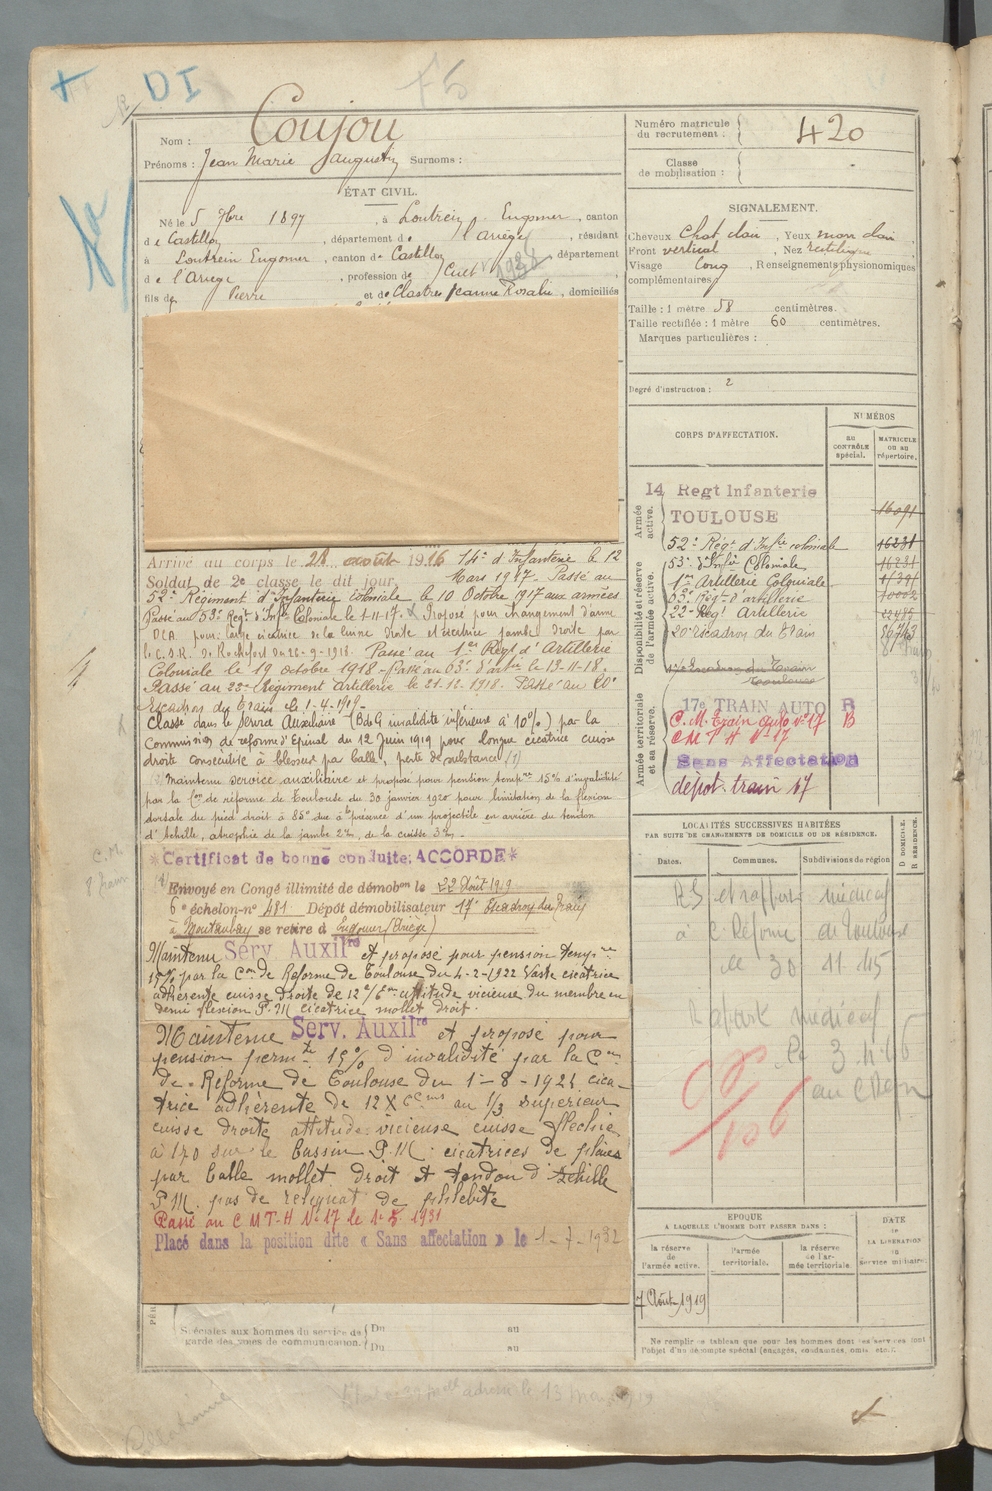 DI
Nom : Coujou
Prénoms : Jean Marie Augustin Surnoms :
ÉTAT CIVIL.
Né le 5 9bre 1897, à Loutrein Engomer, canton
de Castillon, département de l'Ariège, résidant
à Loutrein Engomer, canton de Castillon, département
de l'Ariège, profession de Cult
fils de Pierre et de Clastres Jeanne Rosalie, domiciliés
Numéro matricule
du recrutement : 420
Classe
de mobilisation :
SIGNALEMENT.
Cheveux Chat clair, Yeux mar clair
Front vertical, Nez rectiligne
Visage Long, Renseignements physionomiques
complémentaires
Taille : 1 mètre 58 centimètres.
Taille rectifiée : 1 mètre 60 centimètres.
Marques particulières :
Degré d'instruction : 2
CORPS D'AFFECTATION.
NUMÉROS
au
CONTRÔLE
spécial.
MATRICULE
ou au
répertoire.
Armée
active.
14 Regt Infanterie
TOULOUSE 16091
Disponibilité et réserve
de l'armée active.
52e Régt d'Infrie coloniale 16231
53e d'Infie Coloniale 16231
1er Artillerie Coloniale
Régt d'artillerie
22e Régt Artillerie
20e Escadron du Train
Escadron du Train
Toulouse
Armée territoriale
et sa réserve.
17e TRAIN AUTO R
C.M. Train auto No 17 B
C M T H No 17
Sans Affectation
dépot train 17
Arrivé au corps le 28 août 1916 14e d'Infanterie le 12
Soldat de 2e classe le dit jour. Mars 1917. Passé au
52e Régiment d'Infanterie Coloniale le 10 Octobre 1917 aux armées
Passé au 53e Regt d'Inf Coloniale le 1-11-17. Proposé pour changement d'arme
DCA. pour large cicatrice de la cuisse droite et cicatrice jambe droite par
le C.D.R. de Rochefort du 26-9-1918. Passé au 1er Régt d'Artillerie
Coloniale le 19 octobre 1918 - Passé au 63e d'artie le 13-11-18.
Passé au 22e Régiment Artillerie le 21-12-1918. Passé au 20e
Escadron du Train le 1-4-1919-
Classé dans le Service Auxiliaire (BdeG invalidité inférieure à 10%) par la
Commission de réforme d'Epinal du 12 Juin 1919 pour longue cicatrice cuisse
droite consécutive à blessure par balle, perte de substance (1)
Maintenu service auxiliaire et proposé pour pension tempre 15% d'invalidité
par la Con de réforme de Toulouse du 30 janvier 1920 pour limitation de la flexion
dorsale du pied droit à 85° due à la présence d'un projectile en arrière du tendon
d'Achille, atrophie de la jambe 2%, de la cuisse 3%.
*Certificat de bonne conduite: ACCORDÉ*
Envoyé en Congé illimité de démobon le 22 Août 1919
6e échelon-no 481 Dépôt démobilisateur 17e Escadron du Train
à Montauban se retire à Engomer (Ariège)
Maintenu Serv. Auxilre et proposé pour pension tempre
15% par la Con de Réforme de Toulouse du 4-2-1922 Vaste cicatrice
adhérente cuisse droite de 12c/6m attitude vicieuse du membre en
demi flexion P.M cicatrice mollet droit.
Maintenu Serv. Auxilre et proposé pour
pension permte 15% d'invalidité par la Con
de Réforme de Toulouse du 1-8-1924 cica-
trice adhérente de 12 X cms au 1/3 supérieur
cuisse droite attitude vicieuse cuisse fléchie
à 170 sur le bassin P.M. cicatrices de plaies
par balle mollet droit et tendon d'Achille
P.M. pas de reliquat de phlébite
Passé au C M T-H No 17 le 1-5-1931
Placé dans la position dite « Sans affectation » le 1-7-1932
Spéciales aux hommes du service de
garde des voies de communication.
Du au
Du au
LOCALITÉS SUCCESSIVES HABITÉES
PAR SUITE DE CHANGEMENTS DE DOMICILE OU DE RÉSIDENCE.
Dates. Communes. Subdivisions de région
D DOMICILE.
R RÉSIDENCE.
RS et rapport médical
à C. Réforme de Toulouse
le 30 11 45
Rapport médical
le 3.4.46
EPOQUE
A LAQUELLE L'HOMME DOIT PASSER DANS :
DATE
de
LA LIBÉRATION
du
service militaire.
la réserve
de
l'armée active.
l'armée
territoriale.
la réserve
de l'ar-
mée territoriale.
7 Août 1919
Ne remplir ce tableau que pour les hommes dont les services sont
l'objet d'un décompte spécial (engagés, condamnés, omis, etc.).